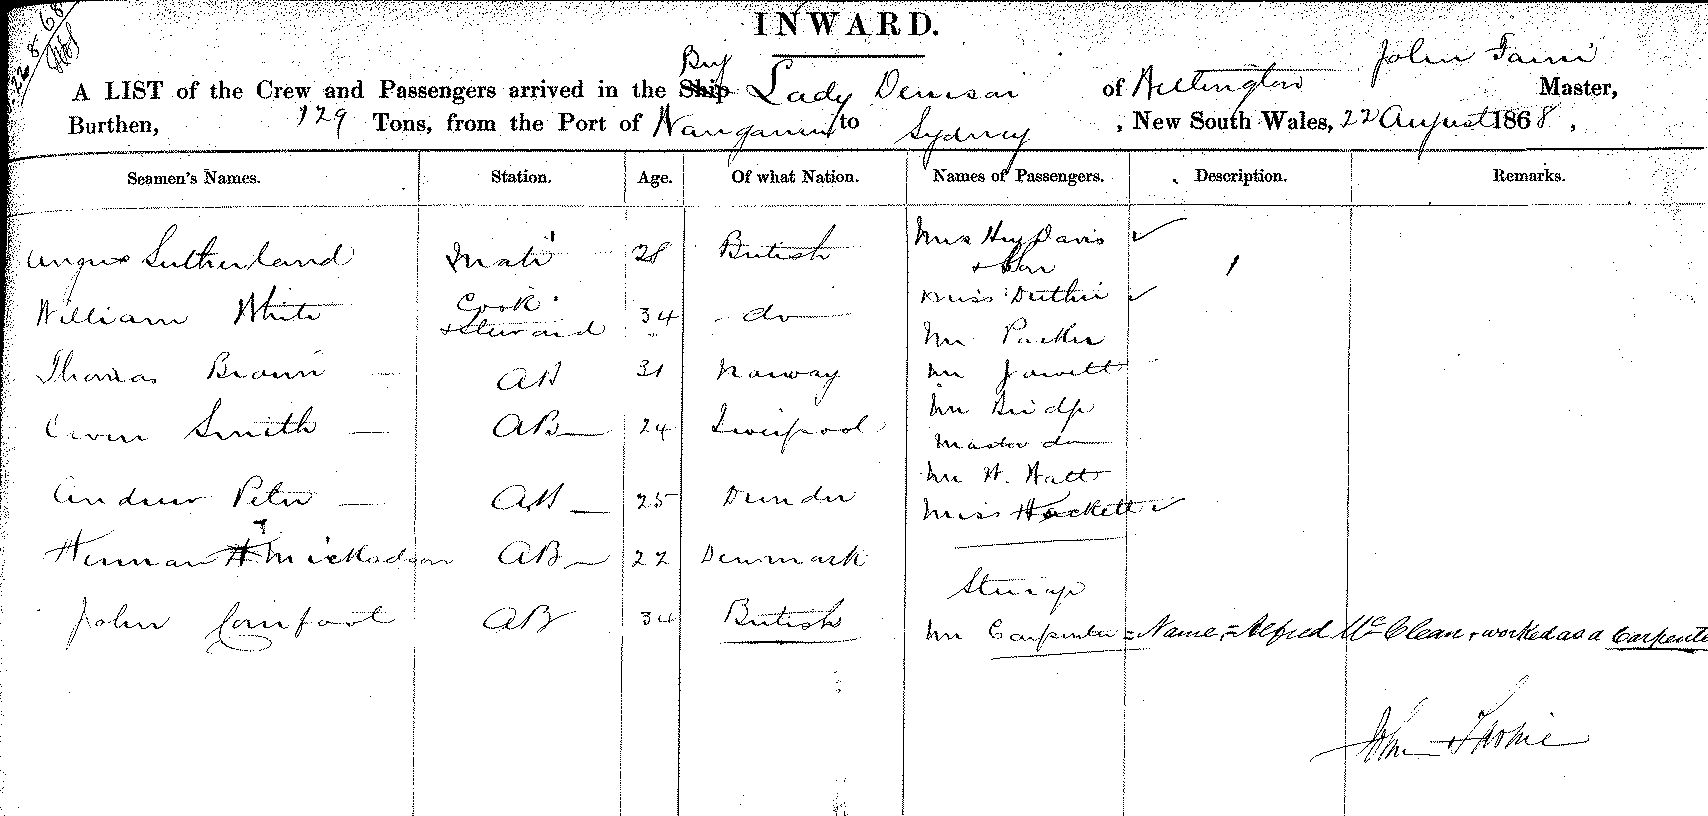 22/8/68
INWARD.
Brig
A LIST of the Crew and Passengers arrived in the Ship Lady Denison of Wellington John Master,
Burthen, 129 Tons, from the Port of to Sydney , New South Wales, 22 August 1868 ,
Seamen's Names. Station. Age. Of what Nation. Names of Passengers. Description. Remarks.
Angus Sutherland Mate 28 British Mrs Hy Davis
+ Son
William White Cook + Steward 34 do Miss Duthie
Mr Parker
Thomas Brown AB 31 Norway Mr Jowett
Owen Smith AB 24 Liverpool Mr
Master do
Andrew Peter AB 25 Dundee Mr H. Hatt
Miss Hackett
Herman AB 22 Denmark
Steerage
John AB 34 British Mr Carpenter = Name, = Alfred McClean, worked as a Carpente
John